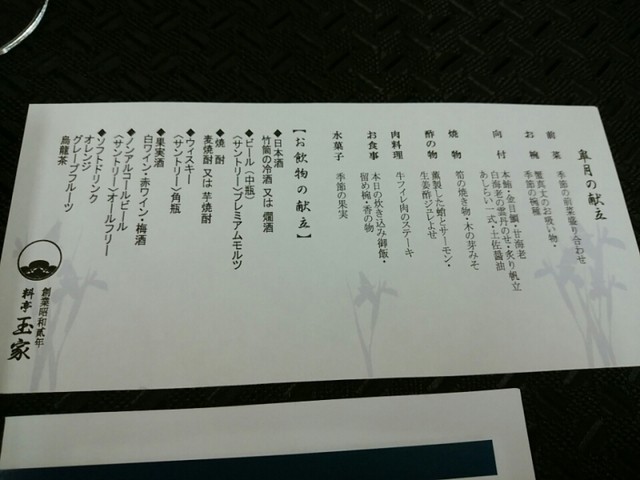 皐月の献立
前菜 季節の前菜盛り合わせ
お椀 蟹真丈のお吸い物・
季節の椀種
向付 本鮪・金目鯛・甘海老
白海老の雲丹のせ・炙り帆立
あしらい一式・土佐醤油
焼物 筍の焼き物・木の芽みそ
酢の物 薫製した蛤とサーモン・
生姜酢ジュレよせ
肉料理 牛フィレ肉のステーキ
お食事 本日の炊き込み御飯・
留め椀・香の物
水菓子 季節の果実
【お飲物の献立】
◆日本酒
竹筒の冷酒 又は 燗酒
◆ビール（中瓶）
〈サントリー〉プレミアムモルツ
◆焼酎
麦焼酎 又は 芋焼酎
◆ウィスキー
〈サントリー〉角瓶
◆果実酒
白ワイン・赤ワイン・梅酒
◆ノンアルコールビール
〈サントリー〉オールフリー
◆ソフトドリンク
オレンジ
グレープフルーツ
烏龍茶
創業昭和貳年
料亭 玉家